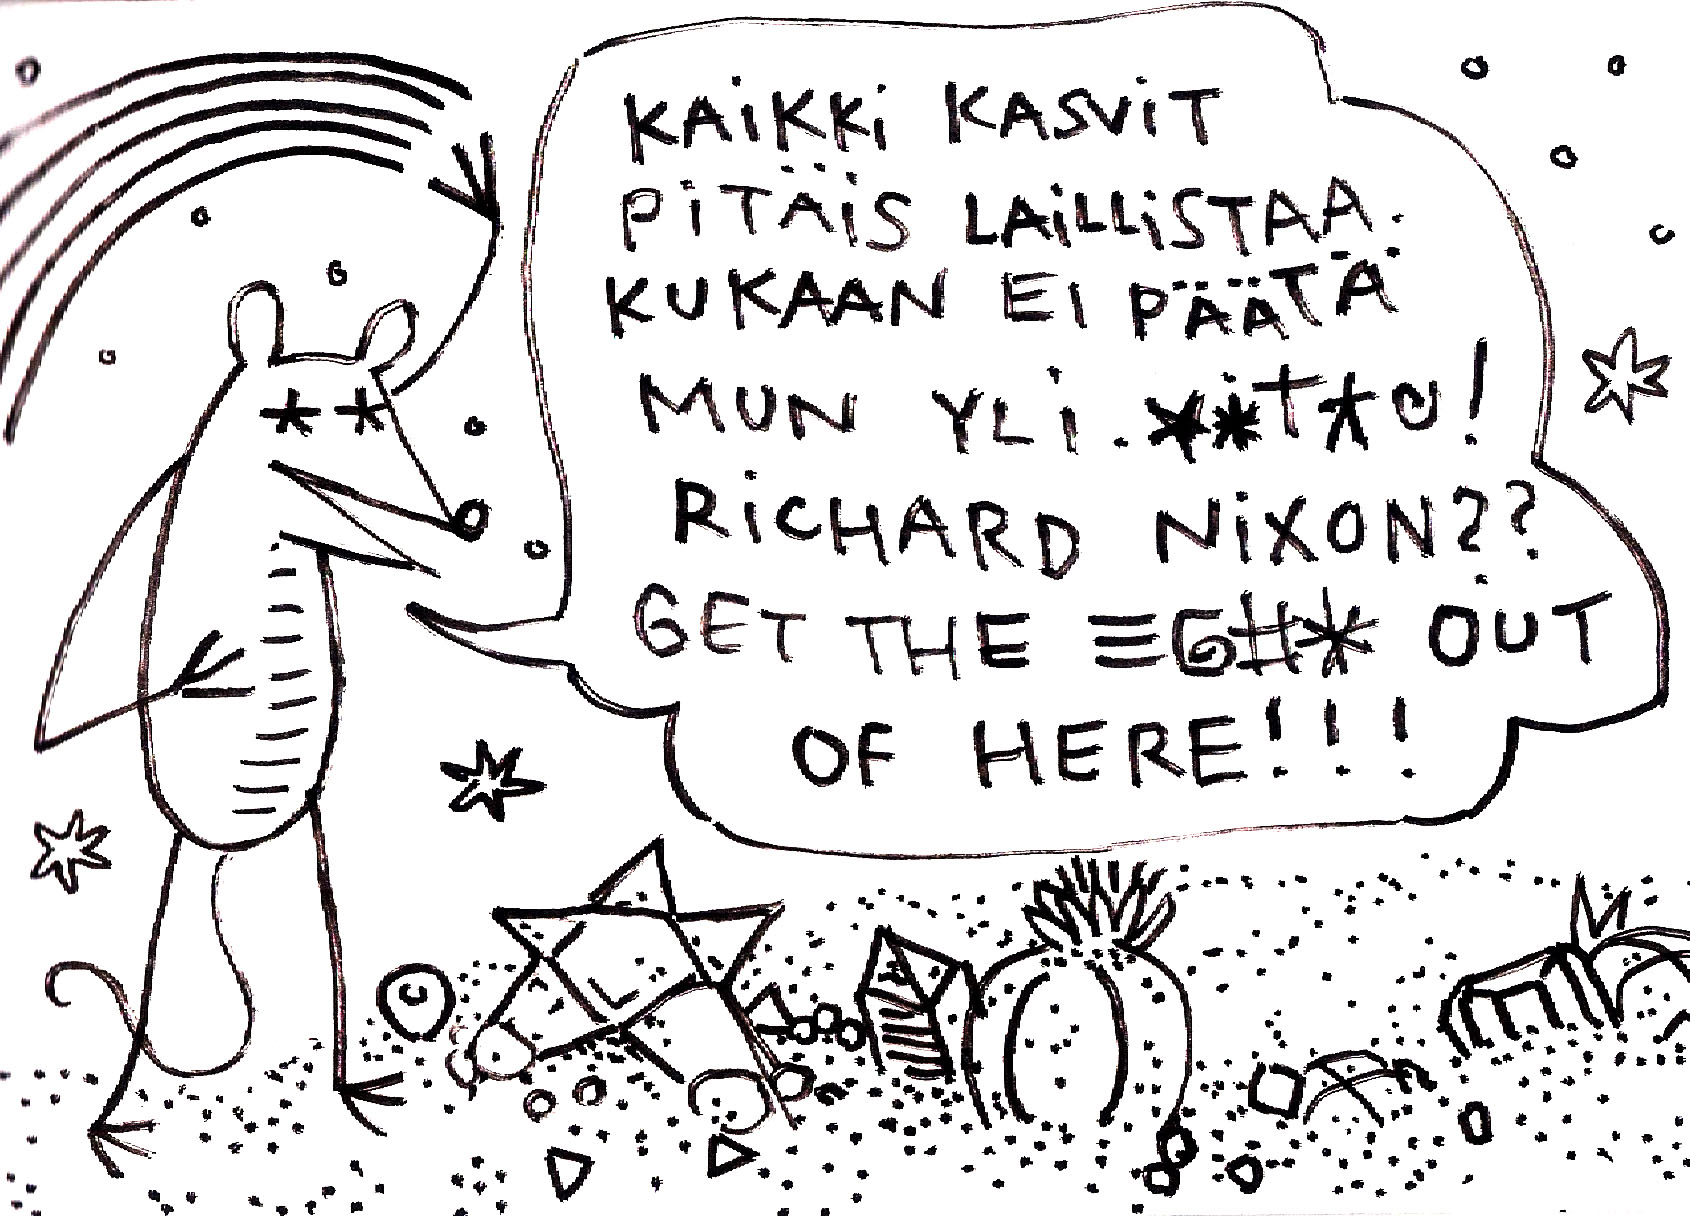 KAiKKi KASViT
PiTÄiS LAiLLiSTAA.
KUKAAN EI PÄÄTÄ
MUN YLi. **T*U!
RiCHARD NiXON??
GET THE ≡G#* OUT
OF HERE!!!